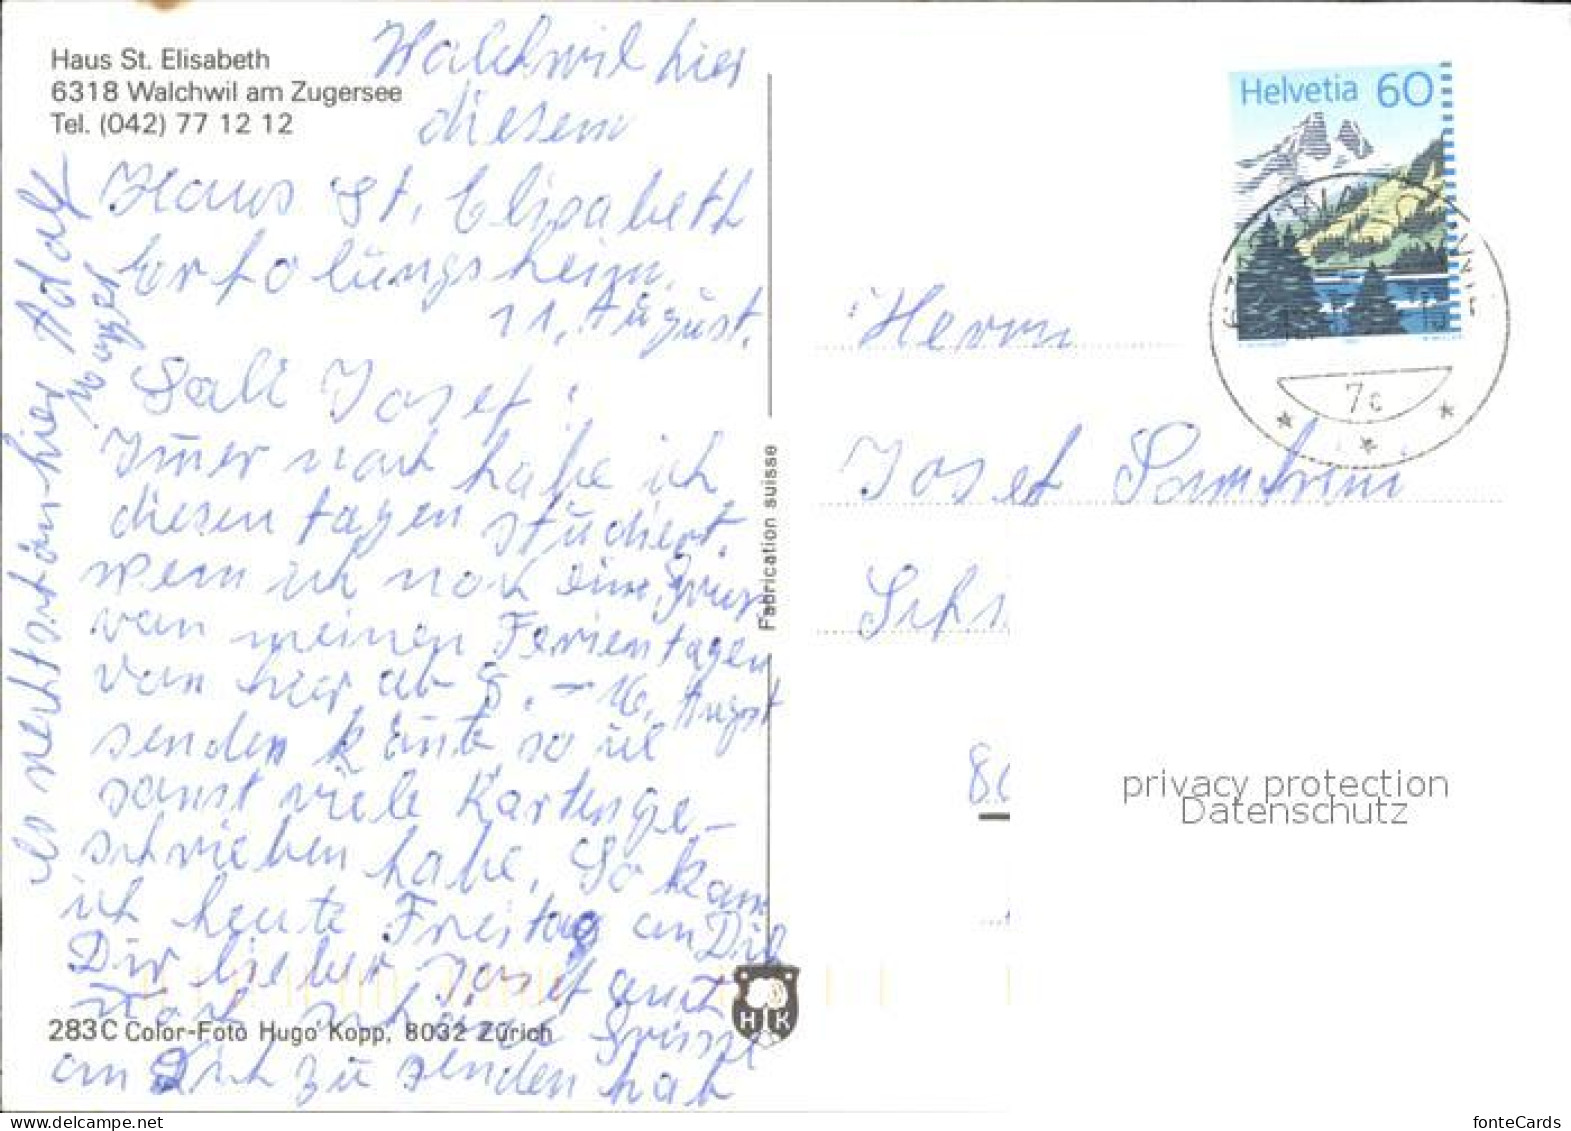 Haus St. Elisabeth
6318 Walchwil am Zugersee
Tel. (042) 77 12 12
Walchwil hier
diesem
Haus St. Elisabeth
Erholungsheim.
11. August.
Sali Josef!
Imer noch habe ich
diesen tagen studiert.
wem ich noch eine Gruss
von meinen Ferientagen
von hier ab 5. – 16. August
senden könte so vil
sonst viele Kartenge-
schrieben habe. So kam
ich heute Freitag an Dich
Dir lieber Josef auch
noch schöne Grüsse
an Dich zu senden hab
Es recht schön hier Adolf
Fabrication suisse
283C Color-Foto Hugo Kopp, 8032 Zürich
H K
Helvetia 60
7c
Herrn
Josef
Sch
80
privacy protection
Datenschutz
fonteCards